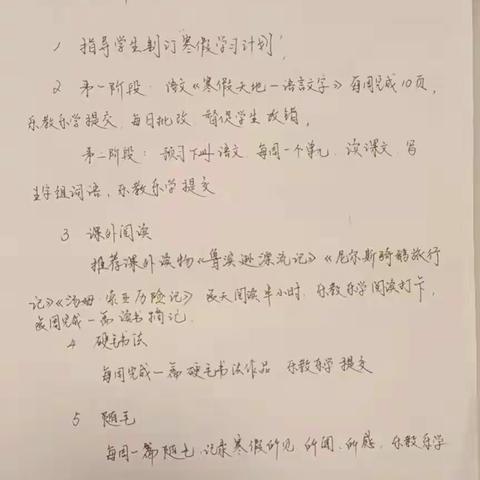 1 指导学生制订寒假学习计划！
2 第一阶段：语文《寒假天地一语言文字》每周完成10页，
乐教乐学提交，每日批改 督促学生改错。
第二阶段：预习下册语文，每周一个单元，读课文，写
生字组词语，乐教乐学提交
3 课外阅读
推荐课外读物《鲁滨逊漂流记》《尼尔斯骑鹅旅行
记》《汤姆·索亚历险记》每天阅读半小时，乐教乐学阅读打卡，
每周完成一篇读书摘记。
4 硬笔书法
每周完成一篇硬笔书法作品 乐教乐学提交
5 随笔
每周一篇随笔，记录寒假所见 所闻，所感，乐教乐学